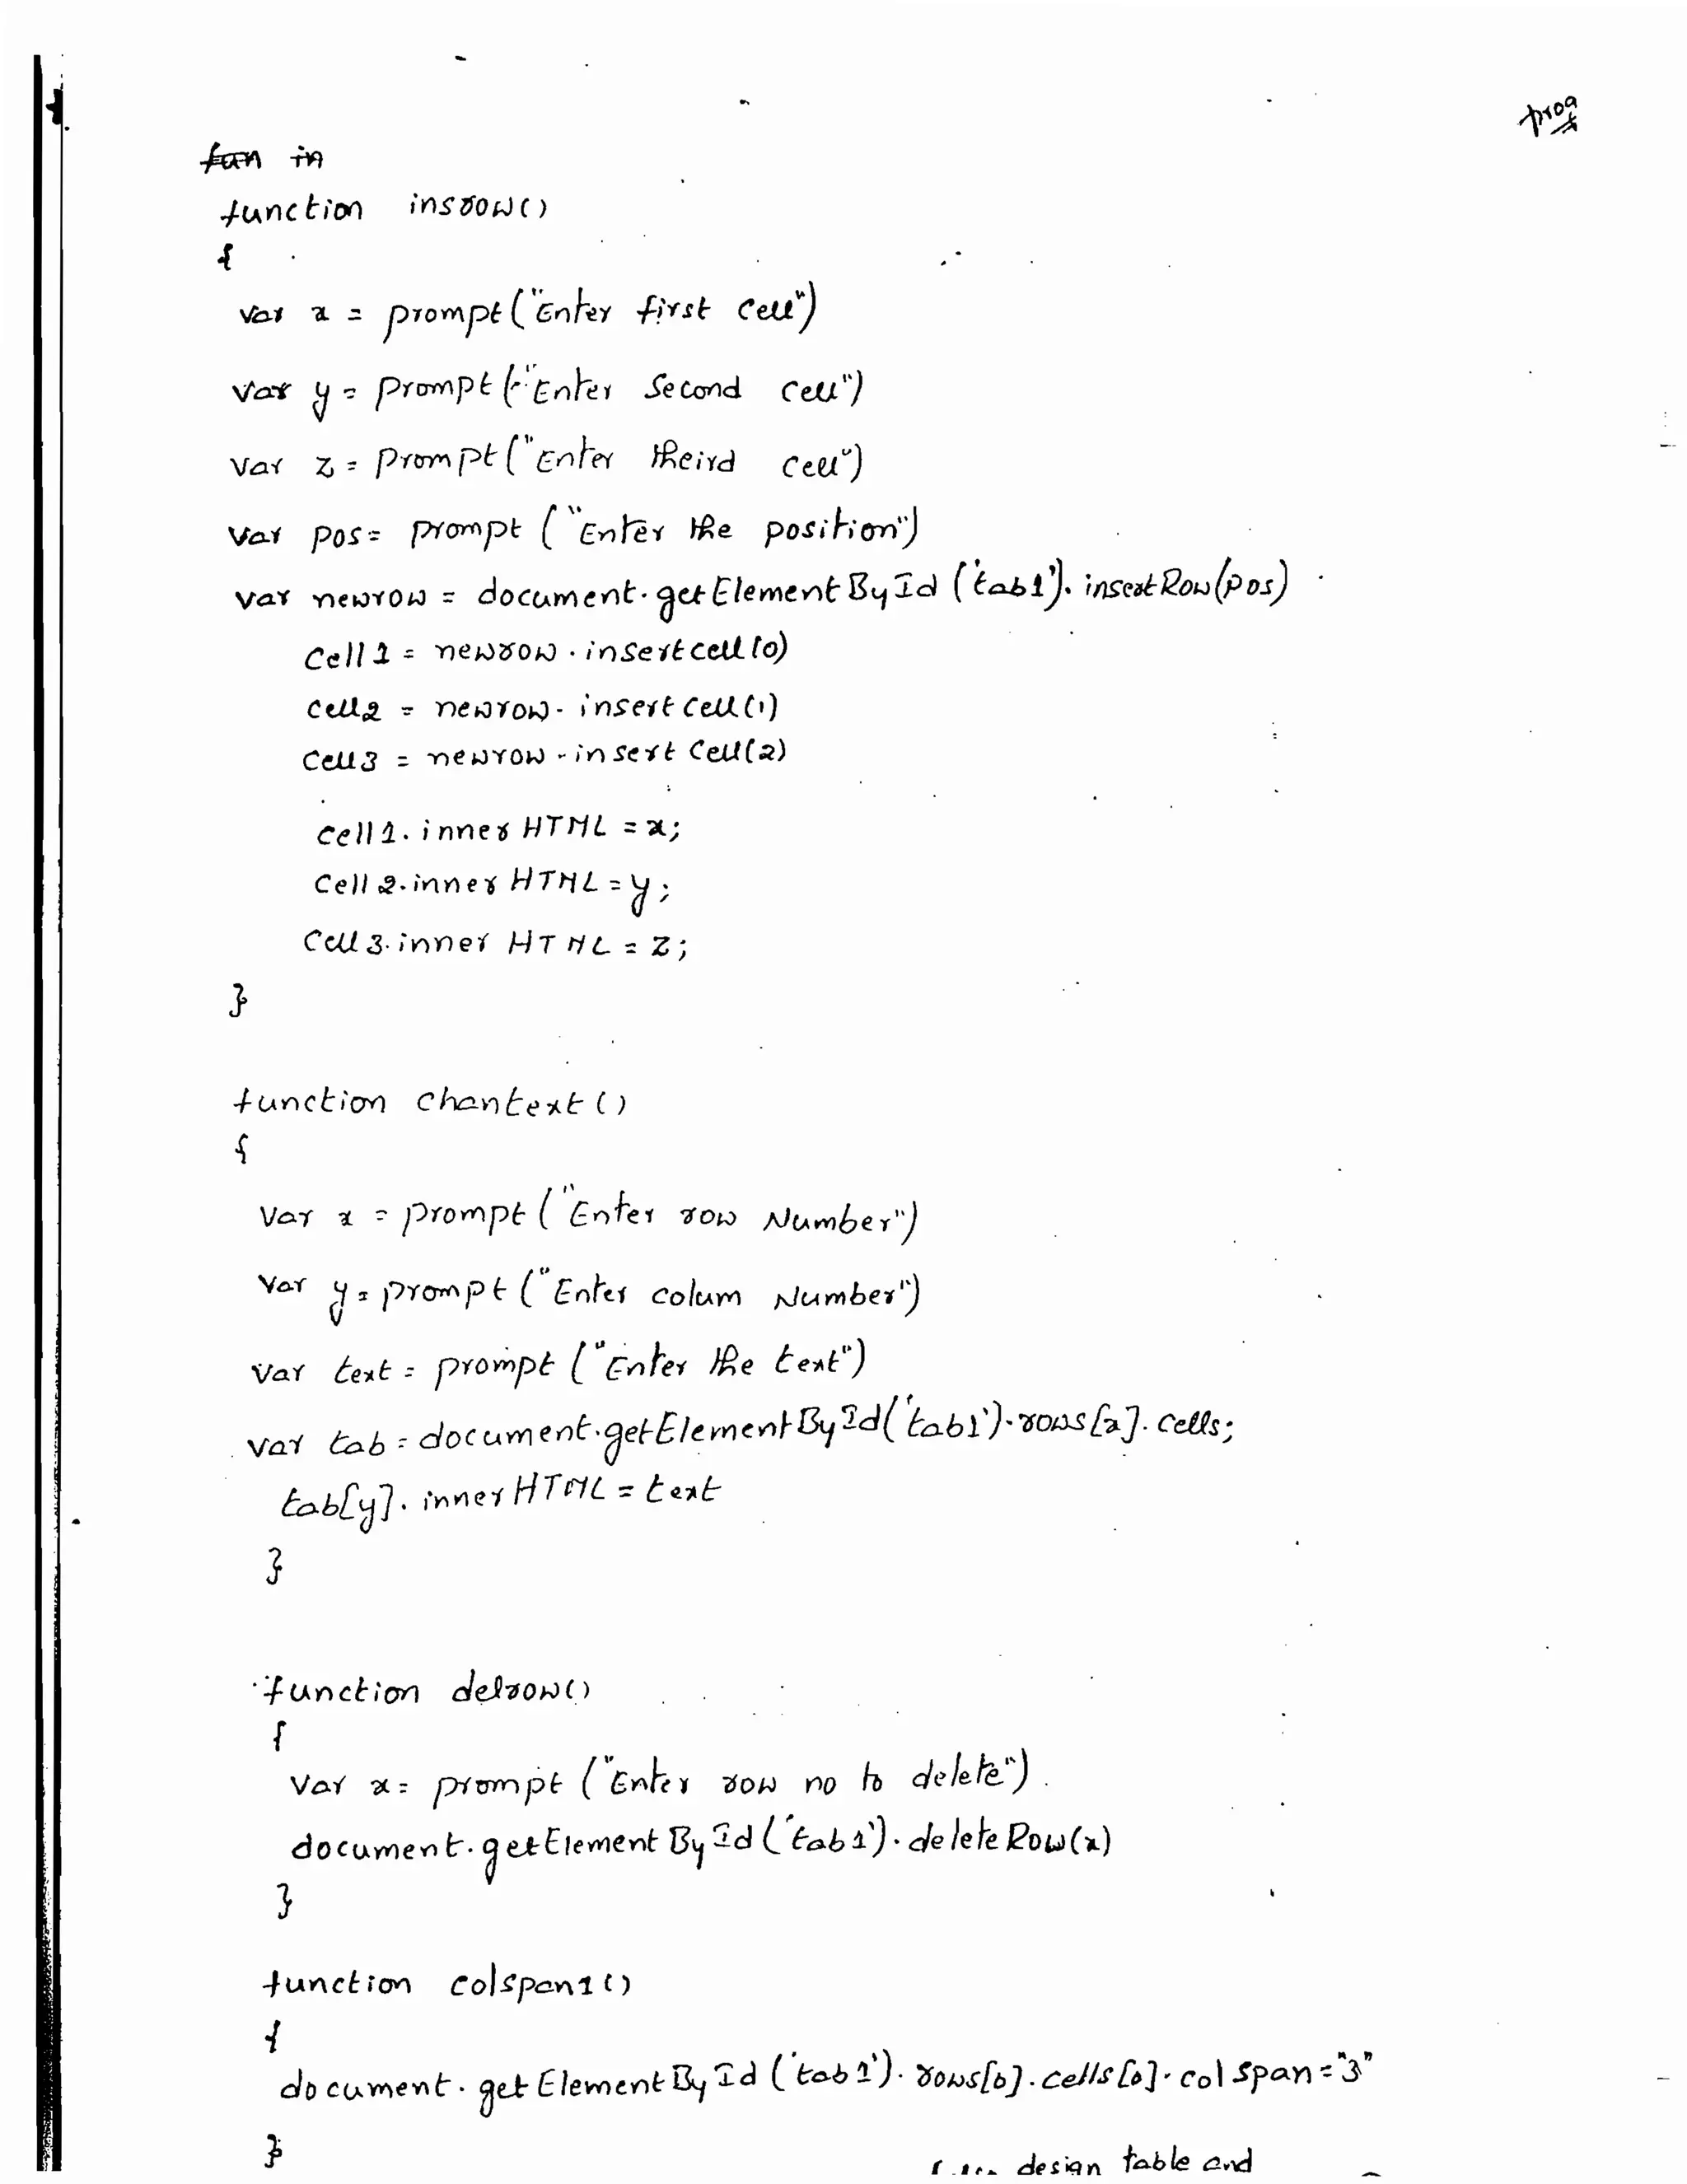 prog
fun in
function insrow()
{
var x = prompt("Enter first cell")
var y = prompt("Enter Second cell")
var z = prompt("Enter theird cell")
var pos = prompt ("Enter the position")
var newrow = document.getElementById('tab1').insertRow(pos)
cell1 = newrow.insertcell(0)
cell2 = newrow.insertcell(1)
cell3 = newrow.insertCell(2)
cell1.innerHTML = x;
cell2.innerHTML = y;
cell3.innerHTML = z;
}
function chantext()
{
var x = prompt("Enter row Number")
var y = prompt("Enter colum Number")
var text = prompt("Enter the text")
var tab = document.getElementById('tab1').rows[x].cells;
tab[y].innerHTML = text
}
function delrow()
{
var x = prompt("Enter row no to delete")
document.getElementById('tab1').deleteRow(x)
}
function colspan1()
{
document.getElementById('tab1').rows[0].cells[0].colspan="3"
}
design table and